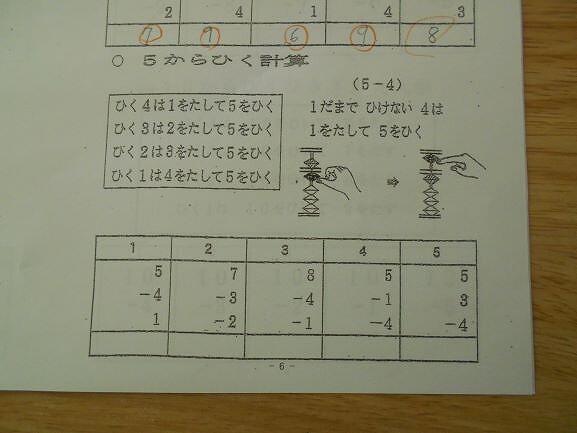 2 4 1 4 3
7 9 6 9 8
○ 5からひく計算
(5-4)
ひく4は1をたして5をひく
ひく3は2をたして5をひく
びく2は3をたして5をひく
ひく1は4をたして5をひく
1だまで ひけない 4は
1をたして 5をひく
⇒
1 2 3 4 5
5 7 8 5 5
-4 -3 -4 -1 3
1 -2 -1 -4 -4
- 6 -